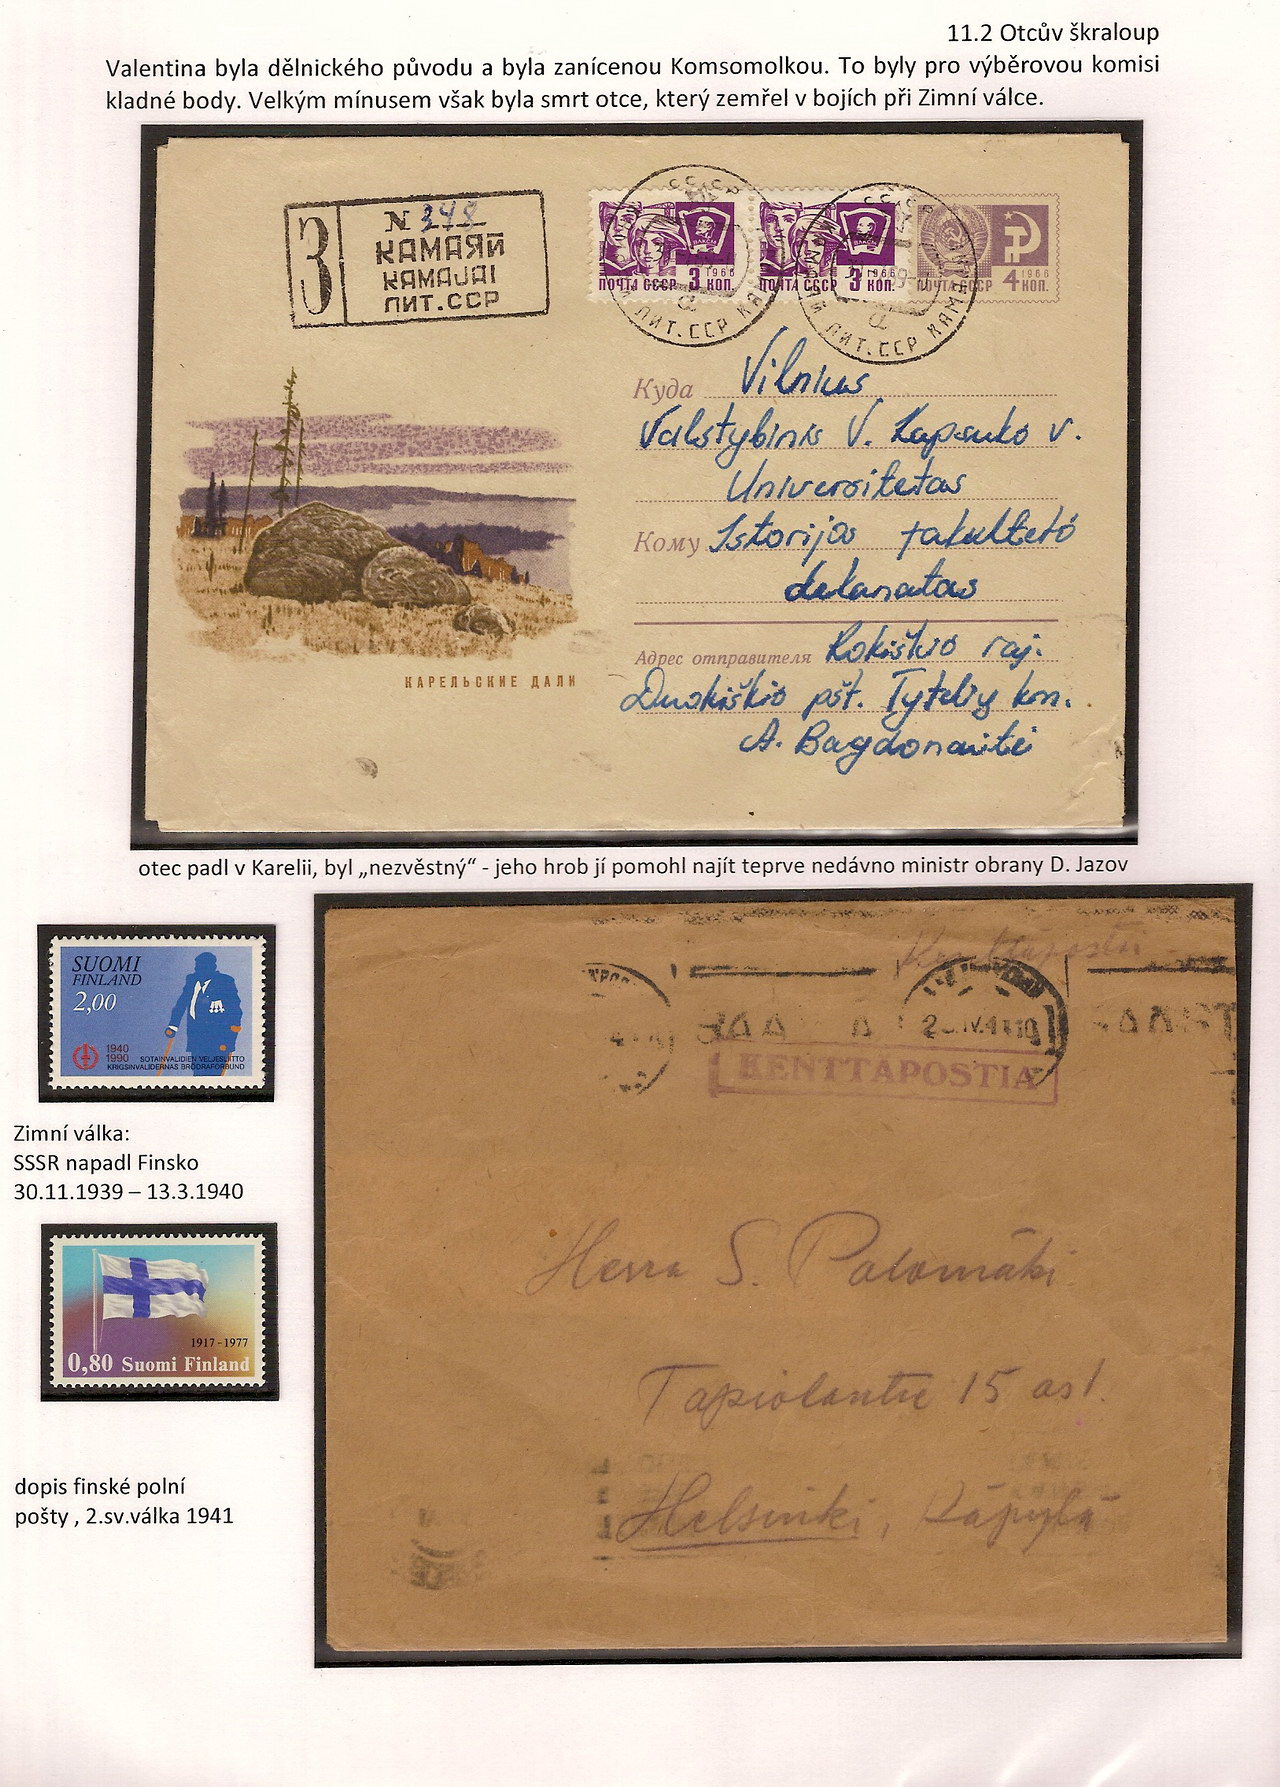 11.2 Otcův škraloup
Valentina byla dělnického původu a byla zanícenou Komsomolkou. To byly pro výběrovou komisi
kladné body. Velkým mínusem však byla smrt otce, který zemřel v bojích při Zimní válce.
З
N 348
КАМАЯЙ
KAMAJAI
ЛИТ.ССР
ПОЧТА СССР 3 КОП. 1966
ПОЧТА СССР 3 КОП. 1966
ПОЧТА СССР 4 КОП. 1966
СССР
ЛИТ.ССР
СССР
ЛИТ.ССР
Куда Vilnius
Valstybinis V. Kapsuko v.
Universitetas
Кому Istorijos fakulteto
dekanatas
Адрес отправителя Rokiškio raj.
Duokiškio pšt. Tytelių km.
A. Bagdonaitė
КАРЕЛЬСКИЕ ДАЛИ
otec padl v Karelii, byl „nezvěstný“ - jeho hrob jí pomohl najít teprve nedávno ministr obrany D. Jazov
SUOMI
FINLAND
2,00
1940
1990
SOTAINVALIDIEN VELJESLIITTO
KRIGSINVALIDERNAS BRÖDRAFÖRBUND
Zimní válka:
SSSR napadl Finsko
30.11.1939 – 13.3.1940
1917-1977
0,80 Suomi Finland
dopis finské polní
pošty , 2.sv.válka 1941
Kenttäpostia
KENTTÄPOSTIA
Herra S. Palomäki
15 as1.
Helsinki, Käpylä